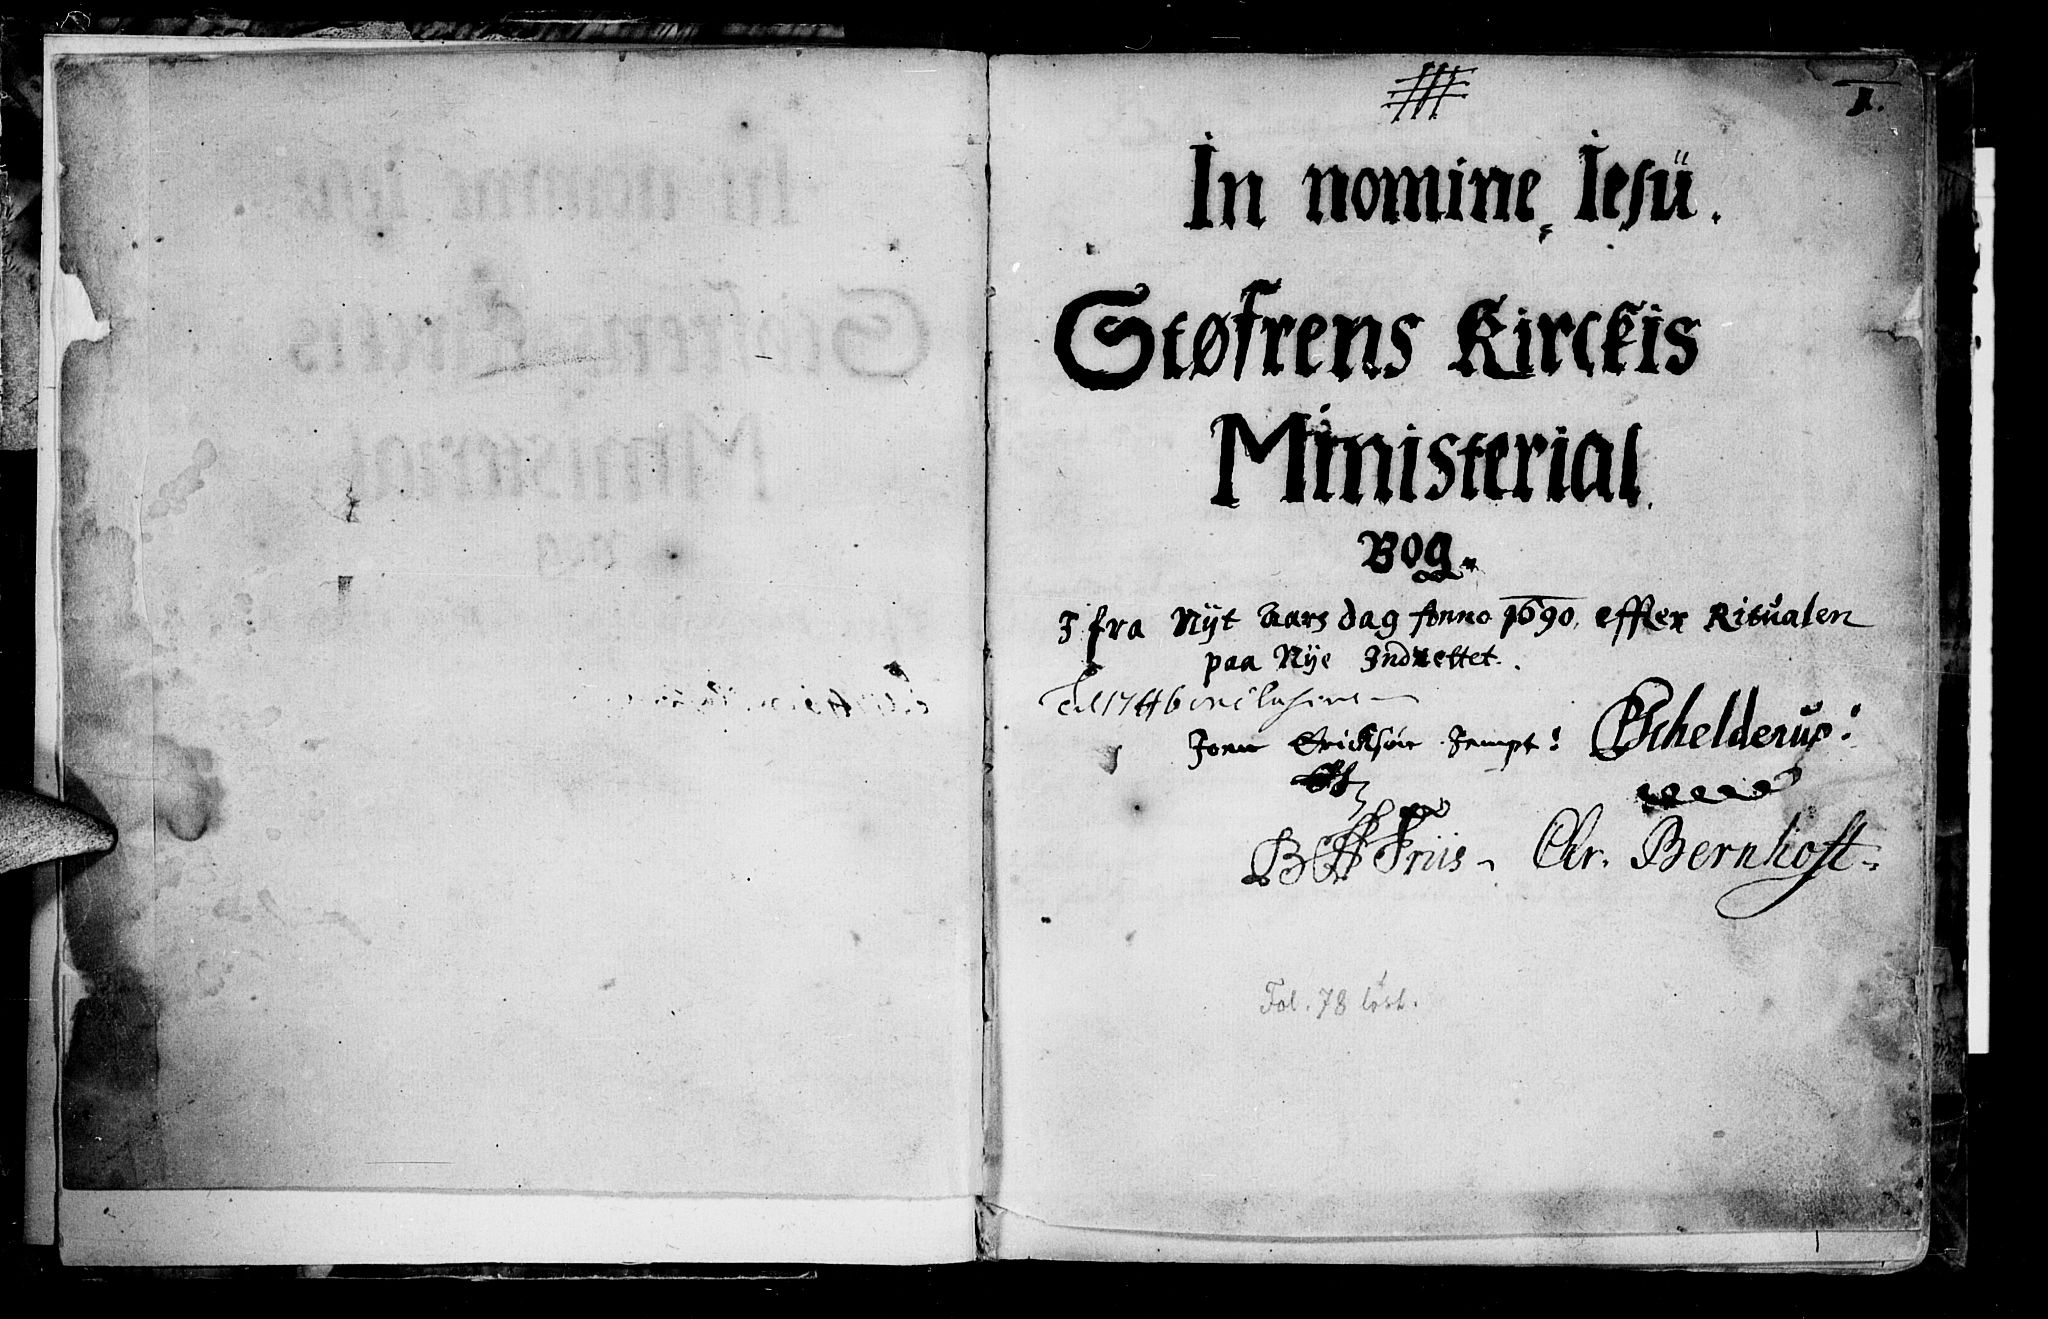 1.
In nomine Iesü.
Støfrens Kirckis
Ministerial
Bog.
I fra Nyt aars dag Anno 1690, effter Ritualen
paa Nye Indrettet.
til 1746 inclusive
P Schelderup:
Friis Chr. Bernhoft
Fol. 78 løst.